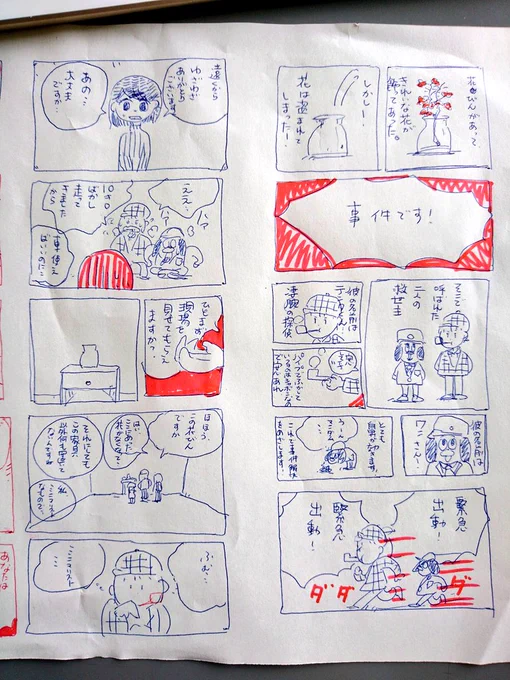 花びんがあって
きれいな花が
飾ってあった。
しかしー!
花は盗まれて
しまった!
事件です!
そこで
呼ばれた
二人の
救世主
彼の名前は
テンタくん!
凄腕の探偵
パイプでふかして
いるのはシャボン玉の
ですんであれ
彼の名前は
ワンさん!
とても
鼻が効きます
うーん
これで事件解決
をめざします!
緊急
出動!
緊急
出動!
ダダ
ダ
遠くから
わざわざ
ありがとう
ございます
あの…
大丈夫
ですか…
ええ…
ハァ
ハァ
10キロ
ばかし
走って
きました
から
車使え
ばいいのに…
ひとまず
現場を
見せてもらえ
ますか?
ほほう、
この花びん
ですか
ここにあった
花がなくなって…
それにしても
この家具
以外何も置いて
ないんですね
私、
ミニマリスト
なもので…
ふむ…
ミニマリスト
あなたは